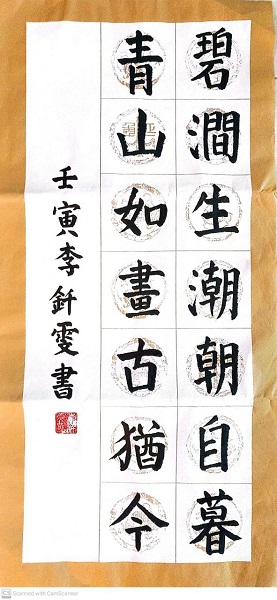 碧澗生潮朝自暮
青山如畫古猶今
壬寅李釺雯書
Scanned with CamScanner